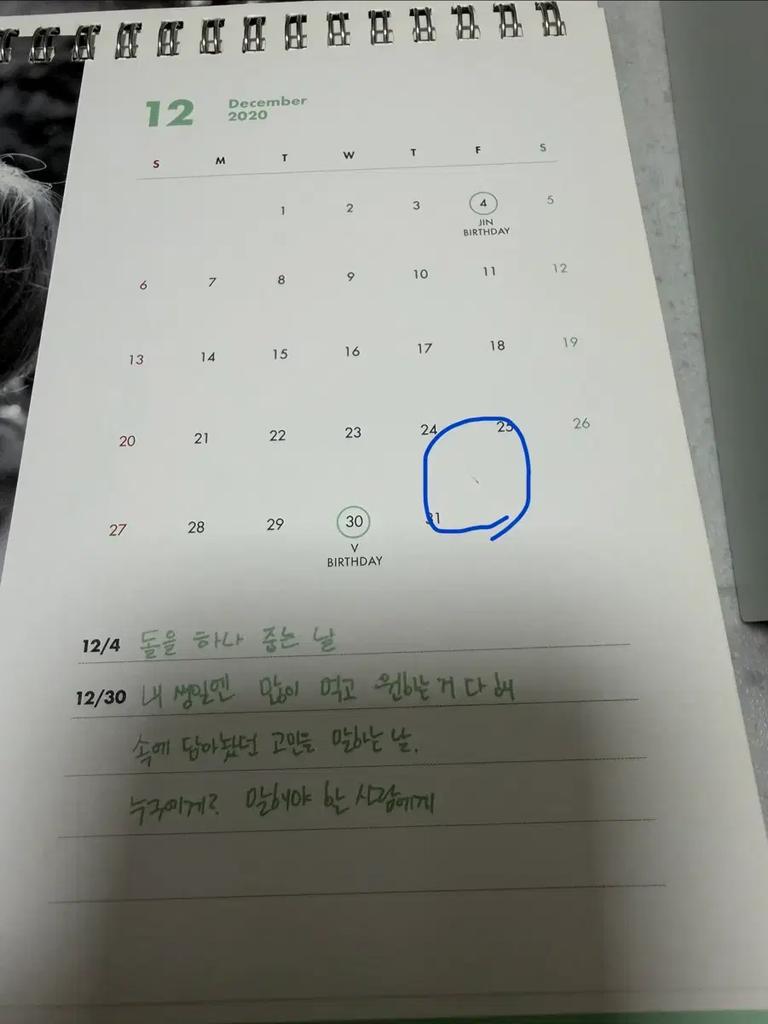 12 December
2020
S M T W T F S
1 2 3 4 5
JIN
BIRTHDAY
6 7 8 9 10 11 12
13 14 15 16 17 18 19
20 21 22 23 24 25 26
27 28 29 30 31
V
BIRTHDAY
12/4 돌을 하나 줍는 날
12/30 내 생일엔 많이 먹고 원하는 거 다 해
속에 담아놨던 고민들 말하는 날.
누구에게? 말해야 할 사람에게